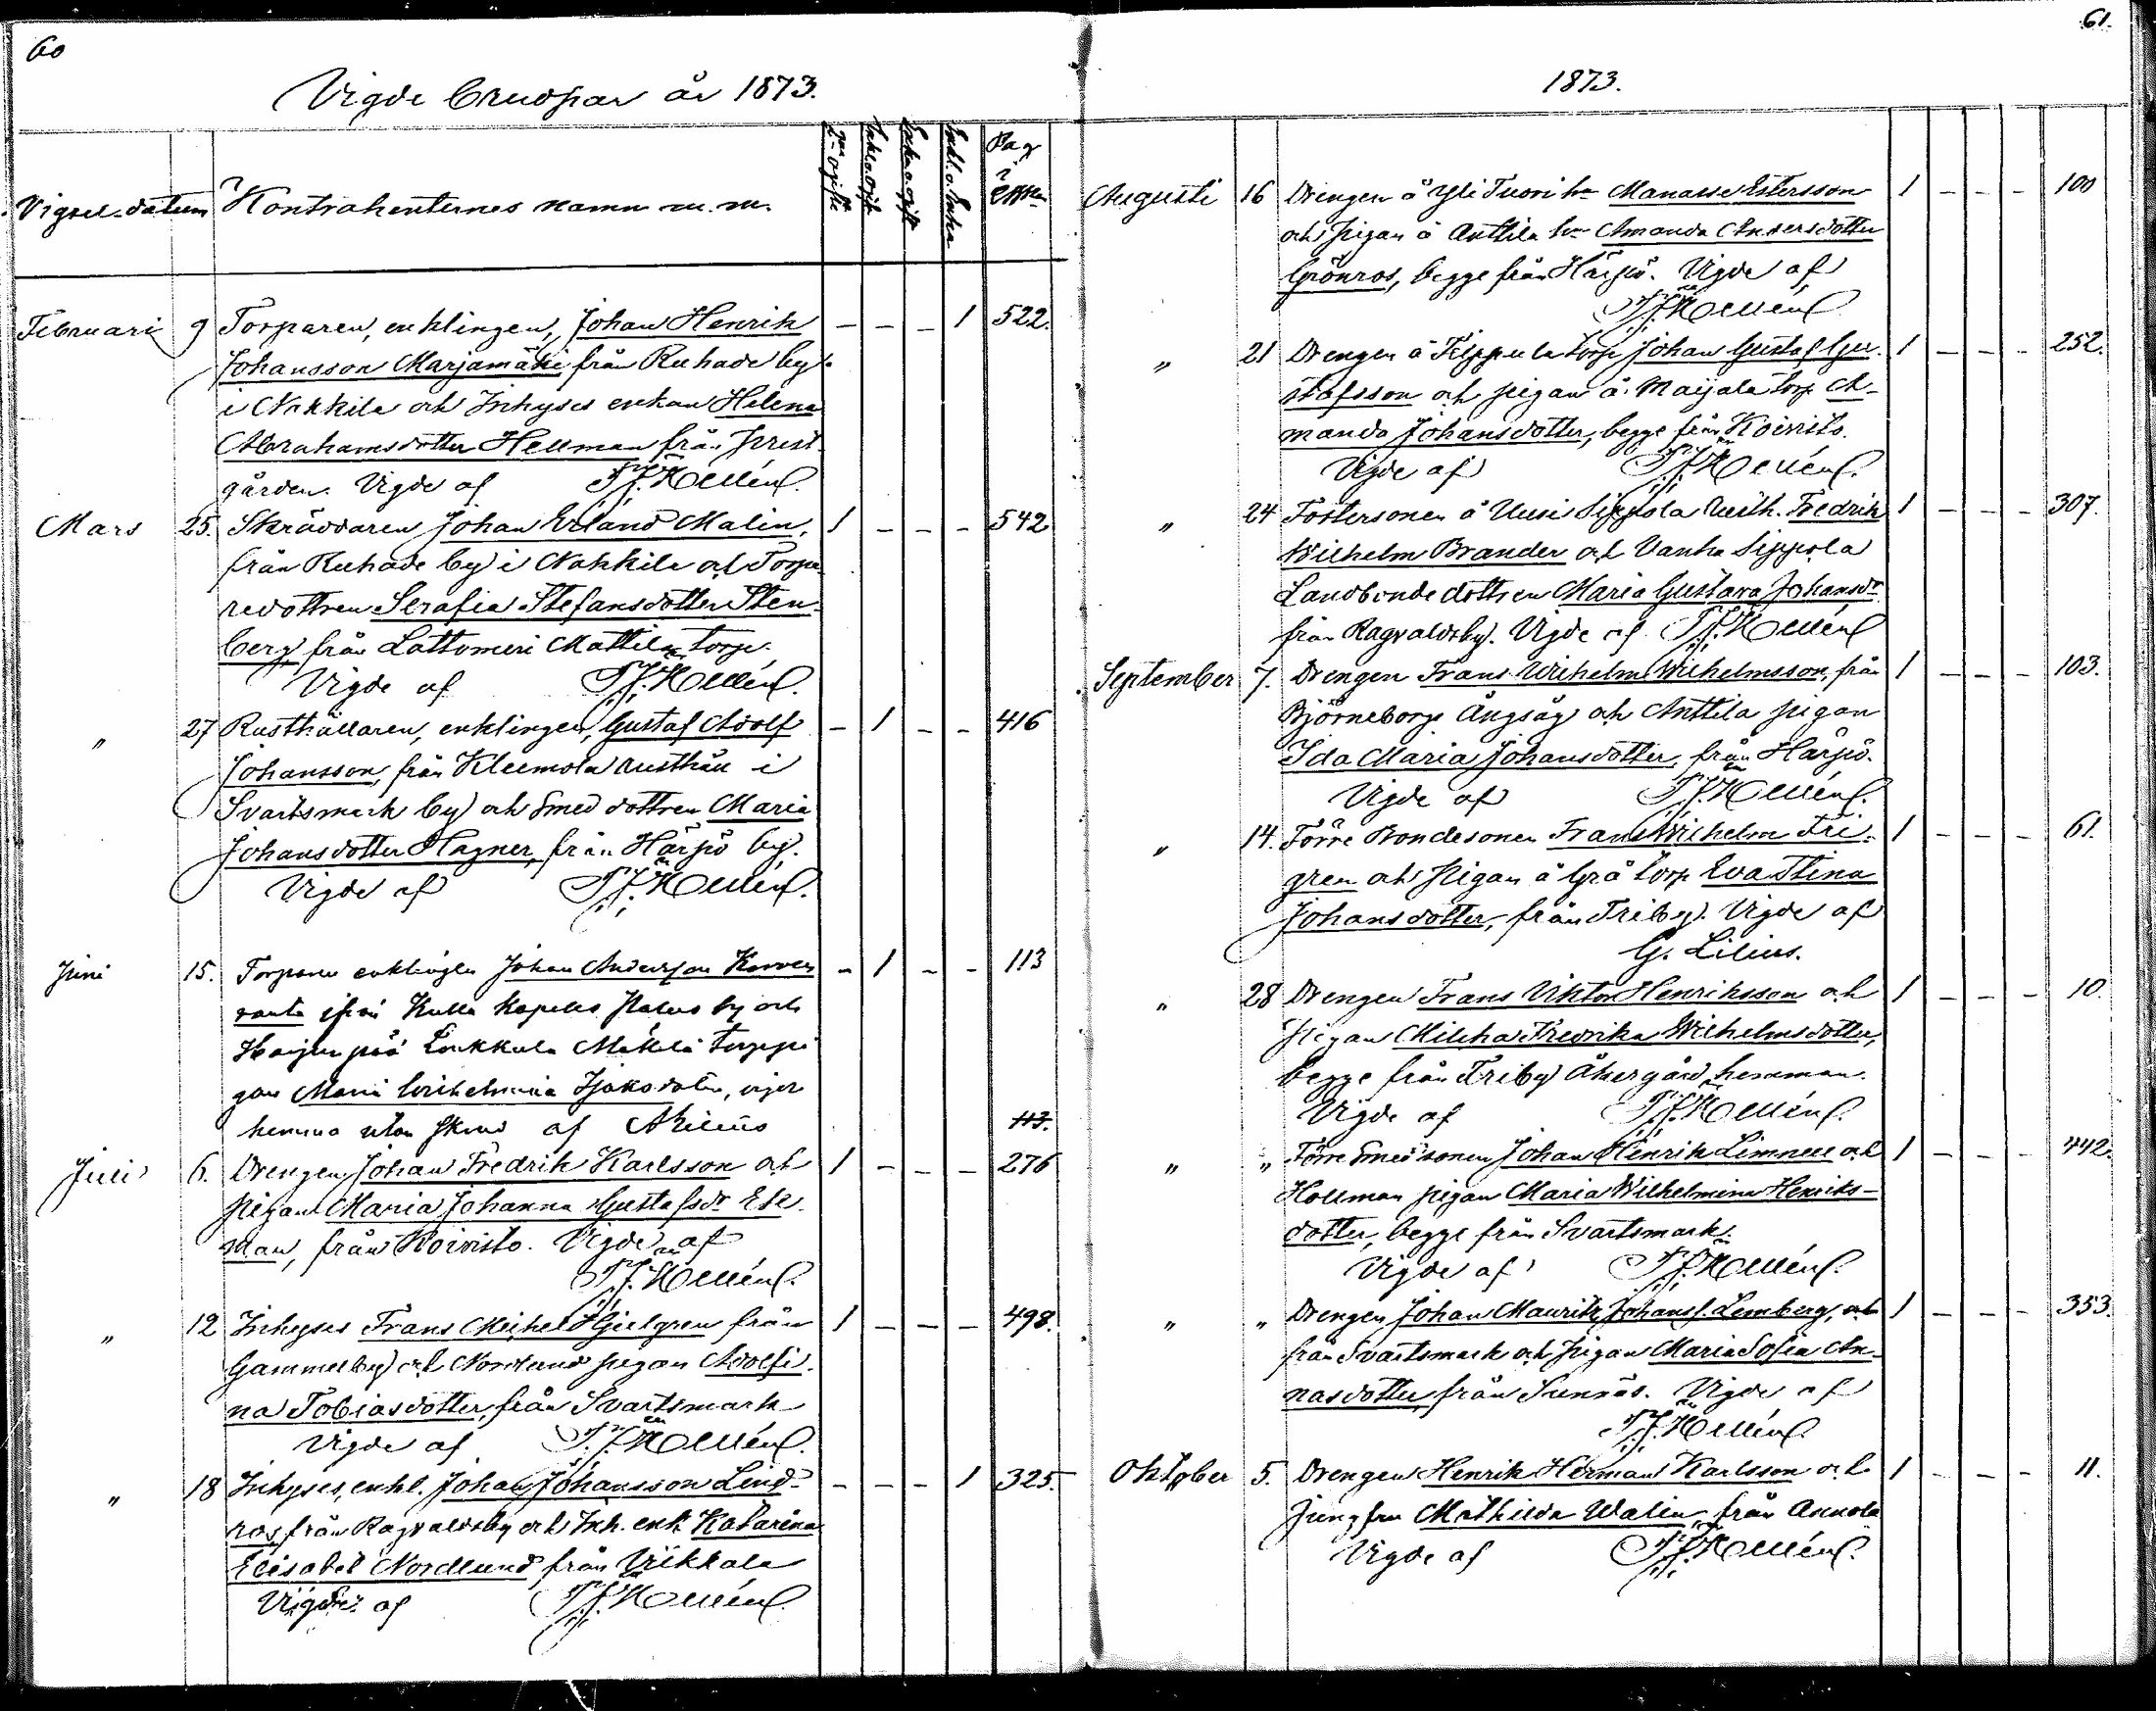 60
Vigde Brudpar år 1873.
Vigsel-datum Kontrahenternes namn m.m. Pag i
Februari 9 Torparen, enklingen, Johan Henrik — — — 1 522.
Johansson Marjamäki från Ruhade by
i Nakkila och Inhyses enkan Helena
Abrahamsdotter Hellman från prest-
gården. Vigde af
Mars 25. Skräddaren Johan Erland Malin, 1 — — — 542
från Ruhade by i Nakkila och Torpa-
redottren Serafia Stefansdotter Sten-
berg, från Lattomeri Mattila torp.
Vigde af
" 27 Rusthållaren, enklingen, Gustaf Adolf — 1 — — 416
Johansson, från Kleemola rusthåll i
Svartsmark by och Smed dottren Maria
Johansdotter Hagner, från Härpö by.
Vigde af
Juni 15. Torparen enklingen Johan Andersson Korven — 1 — — 113
ranta ifrån Kulla Kapells by och
Mäkelä torp pi
gan Maria Wilhelmina
hemma utan af 113.
Juli 6. Drengen Johan Fredrik Karlsson och 1 — — — 276
pigan Maria Johanna Gustafsdr Ek-
man, från Koivisto. Vigde af
" 12 Inhyses Frans Michel Hjelgren från 1 — — — 498.
Gammelby och Nordlund pigan Adolfi-
na Tobiasdotter, från Svartsmark
Vigde af
" 18 Inhyses, enkl. Johan Johansson Lind- — — — 1 325.
ros, från Ragvaldsby och Inh. enk Katarina
Elisabet Nordlund, från Viikkala
Vigde af
61.
1873.
Augusti 16 Drengen å Yli Tuori hn Manasse Estersson 1 — — — 100
och pigan å Anttila hn Amanda Andersdotter
Grönros, begge från Härpö. Vigde af
" 21 Drengen å Filppula torp Johan Gustaf Gu- 1 — — — 252.
stafsson och pigan å Maijala torp A-
manda Johansdotter, begge från Koivisto.
Vigde af
" 24 Fostersonen å Uusi Sippola rusth. Fredrik 1 — — — 307.
Wilhelm Brander och Vanha Sippola
Landbonde dottren Maria Gustava Johansdr
från Ragvaldsby. Vigde af
September 7. Drengen Frans Wilhelm Wilhelmsson, från 1 — — — 103.
Björneborgs Ångsåg och Anttila pigan
Ida Maria Johansdotter, från Härpö.
Vigde af
" 14. Förre Bondesonen Frans Wilhelm Fri- 1 — — — 61.
gren och pigan å Grå torp Eva Stina
Johansdotter, från Friby. Vigde af
G. Lilius.
" 28 Drengen Frans Viktor Henriksson och 1 — — — 10.
pigan Milcha Fredrika Wilhelmsdotter,
begge från Friby Åkergård hemman.
Vigde af
" " Förre Smedsonen Johan Henrik Limnell och 1 — — — 442
Hollman pigan Maria Wilhelmina Henriks-
dotter, begge från Svartsmark.
Vigde af
" " Drengen Johan Mauritz Johanss. Lemberg, och 1 — — — 353
från Svartsmark och pigan Maria Sofia An-
nasdotter från Sunnäs. Vigde af
Oktober 5. Drengen Henrik Herman Karlsson och 1 — — — 11.
Jungfru Mathilda Walin, från Annola
Vigde af